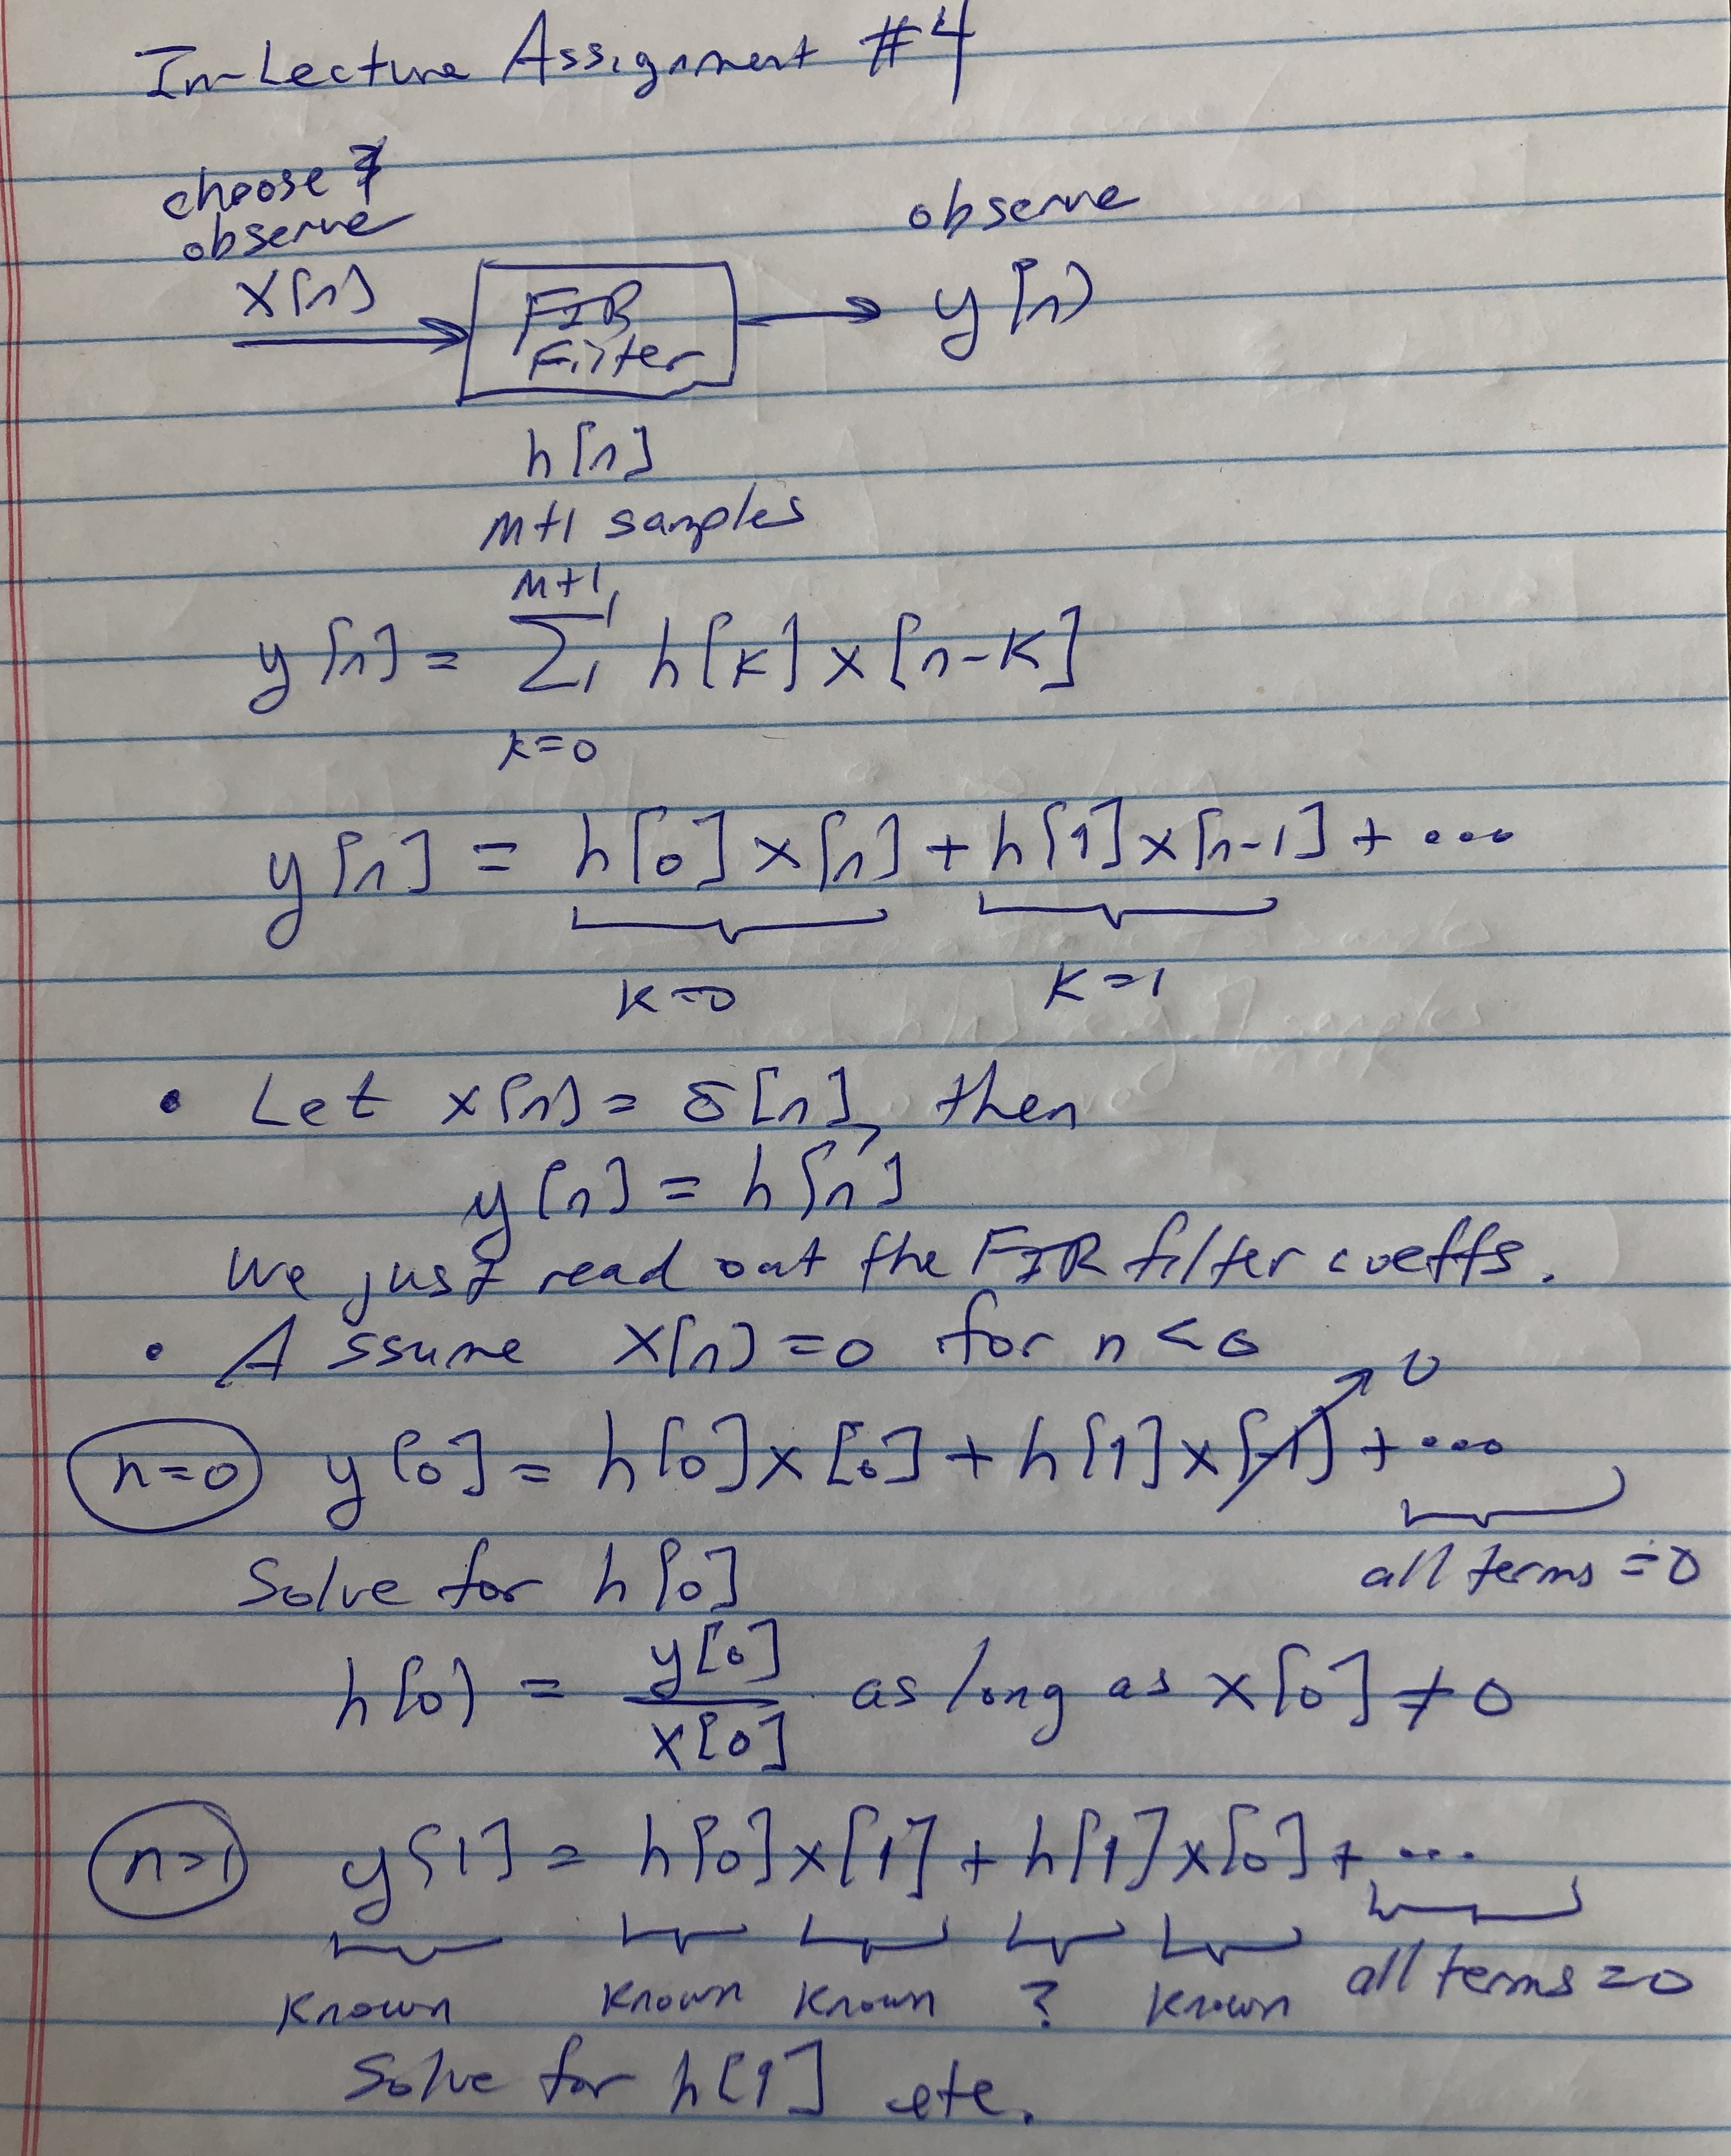 In-Lecture Assignment #4
choose &
observe
observe
x[n]
FIR
Filter
y[n]
h[n]
M+1 samples
M+1
y[n] = Σ h[k] x[n-k]
k=0
y[n] = h[0] x[n] + h[1] x[n-1] + •••
k=0
k=1
• Let x[n] = δ[n], then
y[n] = h[n]
We just read out the FIR filter coeffs.
• Assume x[n] = 0 for n < 0
0
n=0 y[0] = h[0] x[0] + h[1] x[-1] + •••
Solve for h[0]
all terms = 0
h[0] = y[0] / x[0] as long as x[0] ≠ 0
n=1 y[1] = h[0] x[1] + h[1] x[0] + •••
known known known ? known all terms = 0
Solve for h[1] etc.